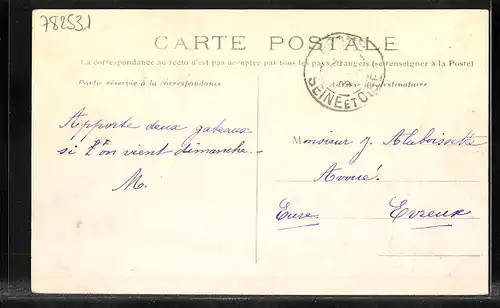 782531
CARTE POSTALE
La correspondance au recto n'est pas acceptée par tous les pays étrangers (se renseigner à la Poste)
Partie réservée à la correspondance
Adresse du destinataire
SEINE ET OISE
Apporte deux gateaux
si l'on vient dimanche.-
M.
Monsieur J. Alaboissette
Avoué.
Eure. Evreux